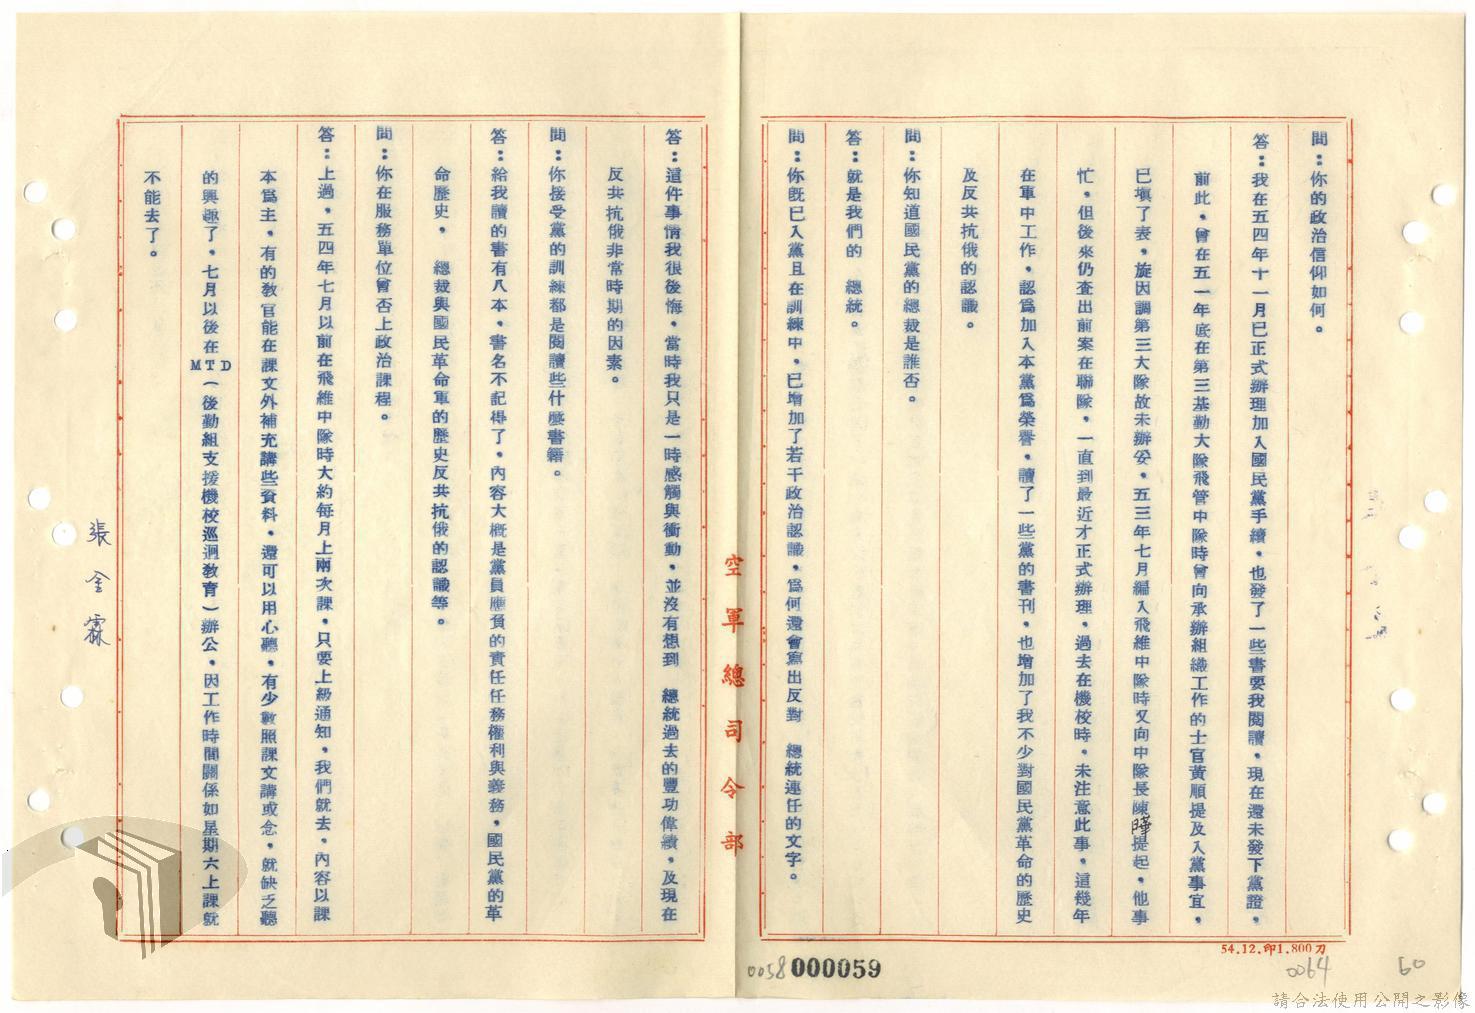 問：你的政治信仰如何。
答：我在五四年十一月已正式辦理加入國民黨手續，也發了一些書要我閱讀，現在還未發下黨證，
前此，曾在五一年底在第三基勤大隊飛管中隊時曾向承辦組織工作的士官黃順提及入黨事宜，
已填了表，旋因調第三大隊故未辦妥，五三年七月編入飛維中隊時又向中隊長陳曄提起，他事
忙，但後來仍查出前案在聯隊，一直到最近才正式辦理，過去在機校時，未注意此事，這幾年
在軍中工作，認為加入本黨為榮譽，讀了一些黨的書刊，也增加了我不少對國民黨革命的歷史
及反共抗俄的認識。
問：你知道國民黨的總裁是誰否。
答：就是我們的　總統。
問：你既已入黨且在訓練中，已增加了若干政治認識，為何還會寫出反對　總統連任的文字。
空軍總司令部
答：這件事情我很後悔，當時我只是一時感觸與衝動，並沒有想到　總統過去的豐功偉績，及現在
反共抗俄非常時期的因素。
問：你接受黨的訓練都是閱讀些什麼書籍。
答：給我讀的書有八本，書名不記得了，內容大概是黨員應負的責任任務權利與義務，國民黨的革
命歷史，　總裁與國民革命軍的歷史反共抗俄的認識等。
問：你在服務單位曾否上政治課程。
答：上過，五四年七月以前在飛維中隊時大約每月上兩次課，只要上級通知，我們就去，內容以課
本為主，有的教官能在課文外補充講些資料，還可以用心聽，有少數照課文講或念，就缺乏聽
的興趣了，七月以後在MTD（後勤組支援機校巡迴教育）辦公，因工作時間關係如星期六上課就
不能去了。
張全霖
54.12.印1.800刀
0058 000059
0064
60
請合法使用公開之影像